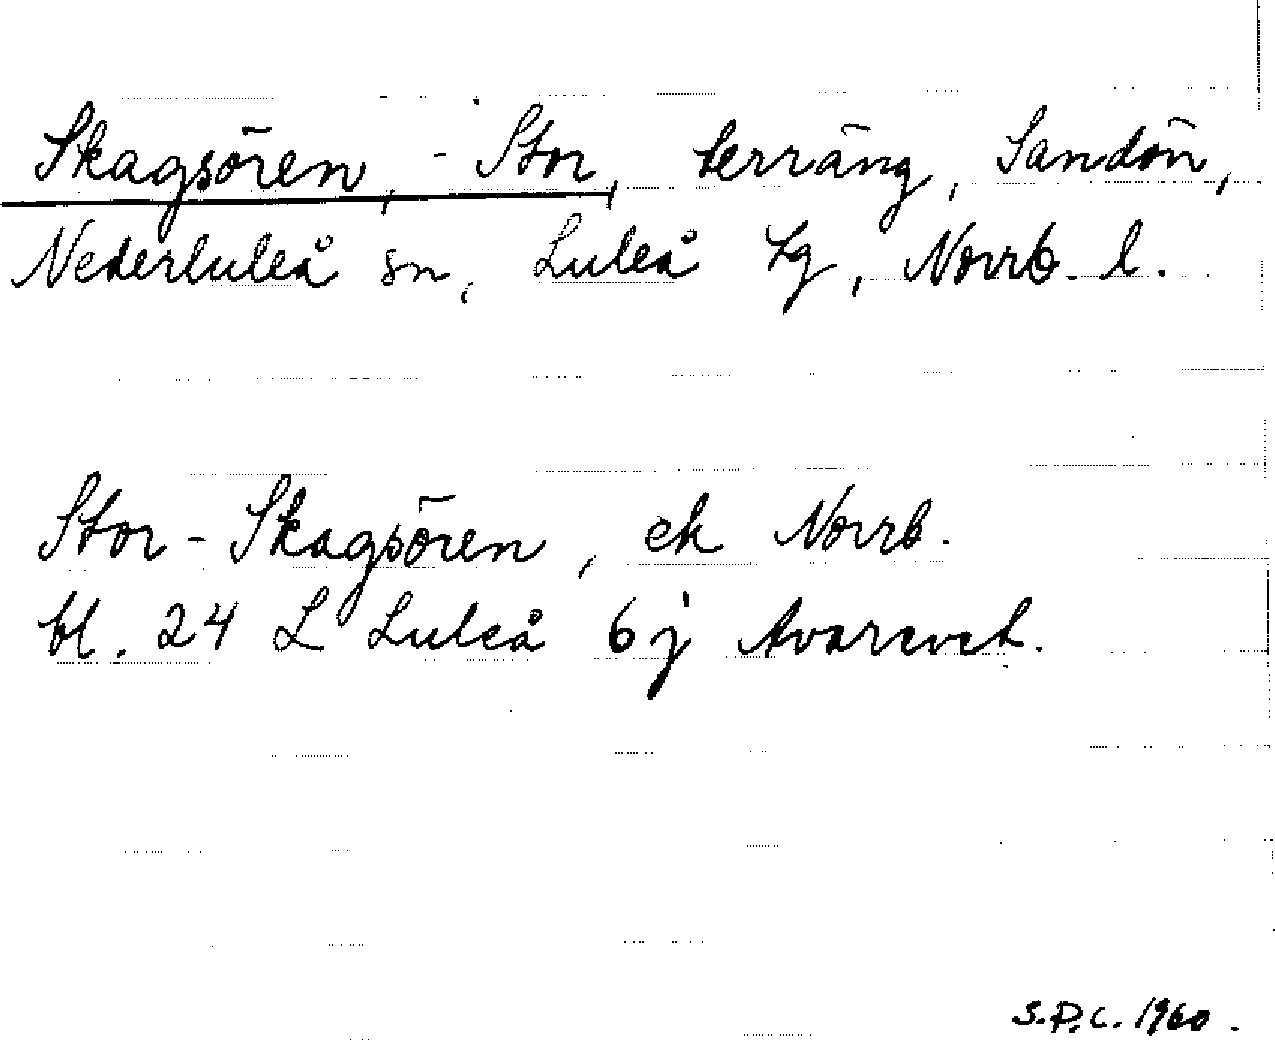 Skagsören, - Stor, terräng, Sandön,
Nederluleå sn, Luleå tg, Norrb. l.
Stor-Skagsören, ek Norrb.
bl. 24 L Luleå 6j Avarevet.
S.P.C. 1960.